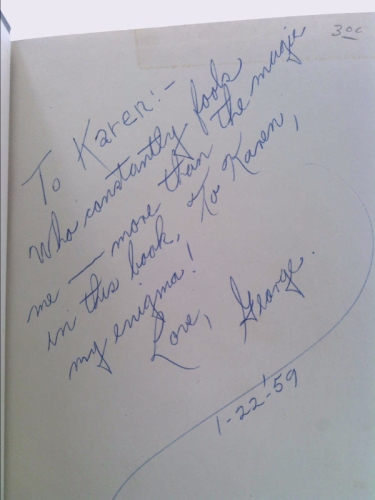 30c
To Karen:-
Who constantly fools
me — more than the magic
in this book, To Karen,
my enigma!
Love, George.
1-22-59